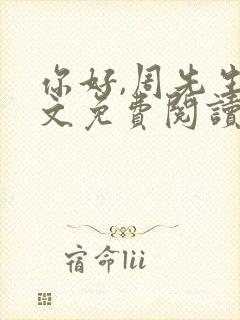 你好,周先生
文免费閱讀
宿命lii